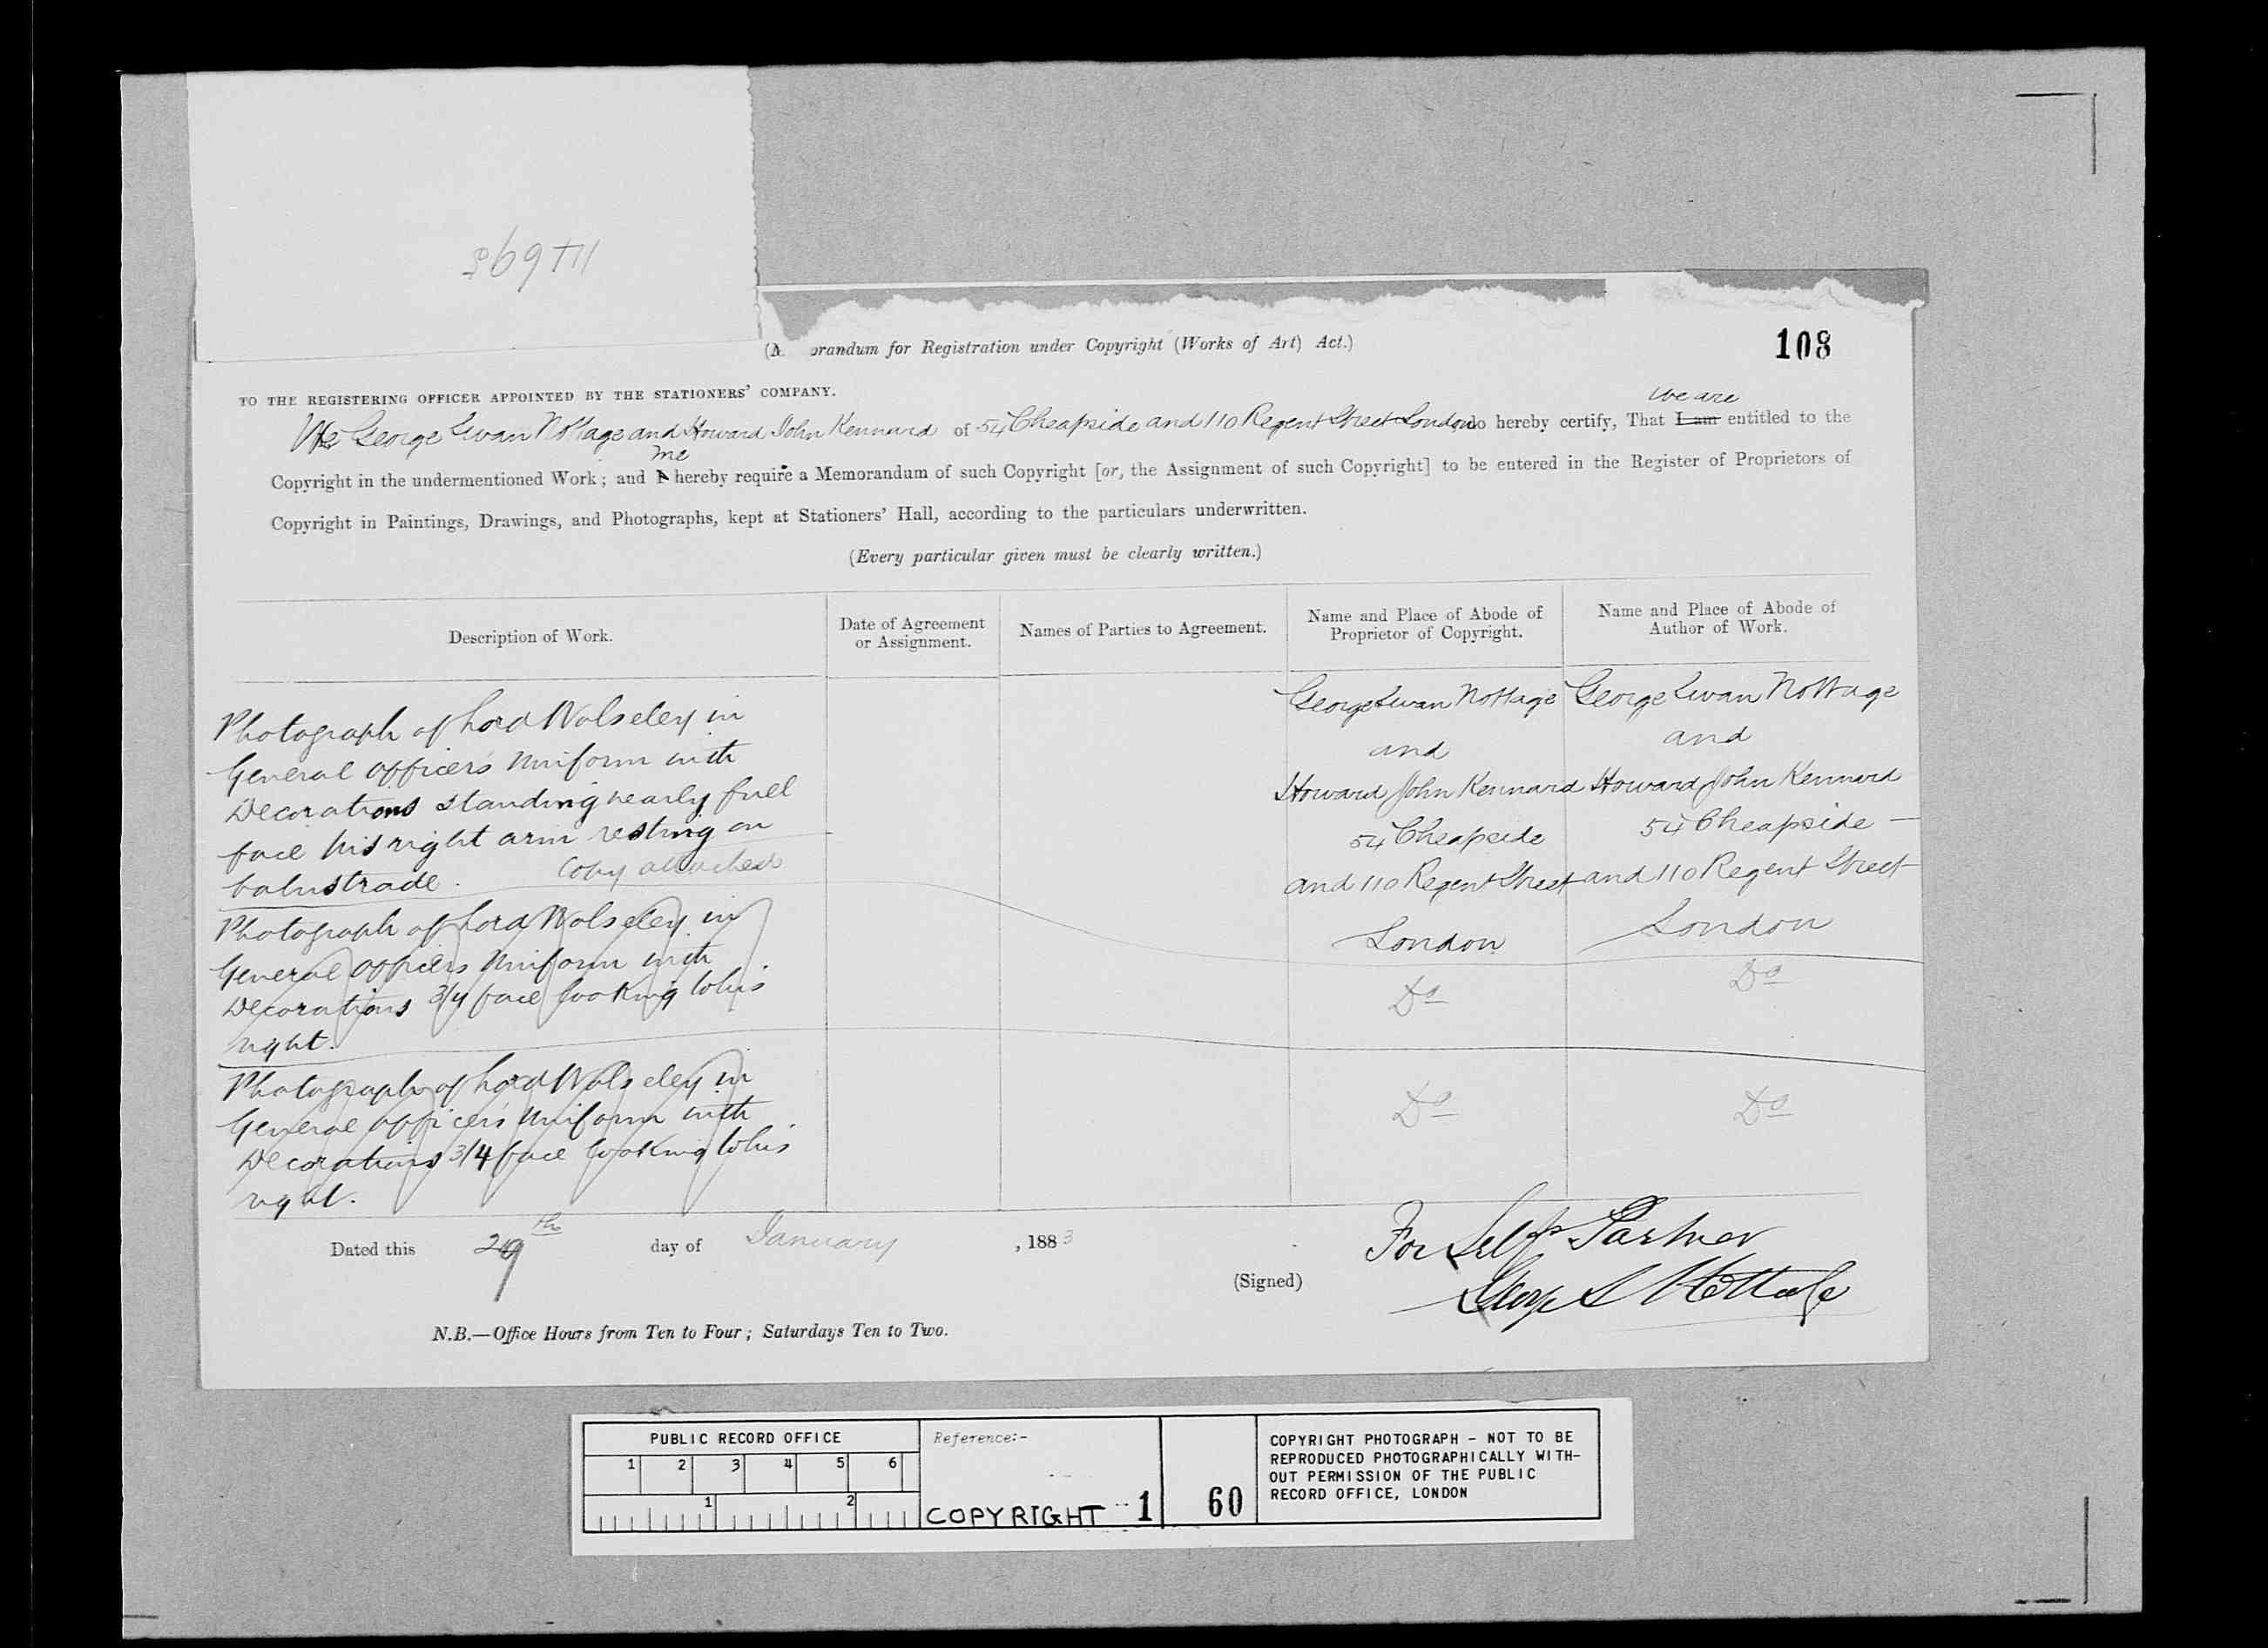 (M orandum for Registration under Copyright (Works of Art) Act.)
108
TO THE REGISTERING OFFICER APPOINTED BY THE STATIONERS' COMPANY.
We George Swan Nottage and Howard John Kennard of 54 Cheapside and 110 Regent Street London do hereby certify, That I am we are entitled to the
Copyright in the undermentioned Work; and I we hereby require a Memorandum of such Copyright [or, the Assignment of such Copyright] to be entered in the Register of Proprietors of
Copyright in Paintings, Drawings, and Photographs, kept at Stationers' Hall, according to the particulars underwritten.
(Every particular given must be clearly written.)
Description of Work.
Date of Agreement
or Assignment.
Names of Parties to Agreement.
Name and Place of Abode of
Proprietor of Copyright.
Name and Place of Abode of
Author of Work.
Photograph of Lord Wolseley in
General Officers Uniform with
Decorations standing nearly full
face his right arm resting on
balustrade. Copy attached
George Swan Nottage
and
Howard John Kennard
54 Cheapside
and 110 Regent Street
London
George Swan Nottage
and
Howard John Kennard
54 Cheapside
and 110 Regent Street
London
Photograph of Lord Wolseley in
General Officers Uniform with
Decorations 3/4 face looking to his
right.
Do
Do
Photograph of Lord Wolseley in
General Officers Uniform with
Decorations 3/4 face looking to his
right.
Do
Do
Dated this 29th day of January, 1883
For Self & Partner
(Signed) George S Nottage
N.B.—Office Hours from Ten to Four; Saturdays Ten to Two.
PUBLIC RECORD OFFICE
1 2 3 4 5 6
1 2
Reference:-
COPYRIGHT 1 60
COPYRIGHT PHOTOGRAPH - NOT TO BE
REPRODUCED PHOTOGRAPHICALLY WITH-
OUT PERMISSION OF THE PUBLIC
RECORD OFFICE, LONDON